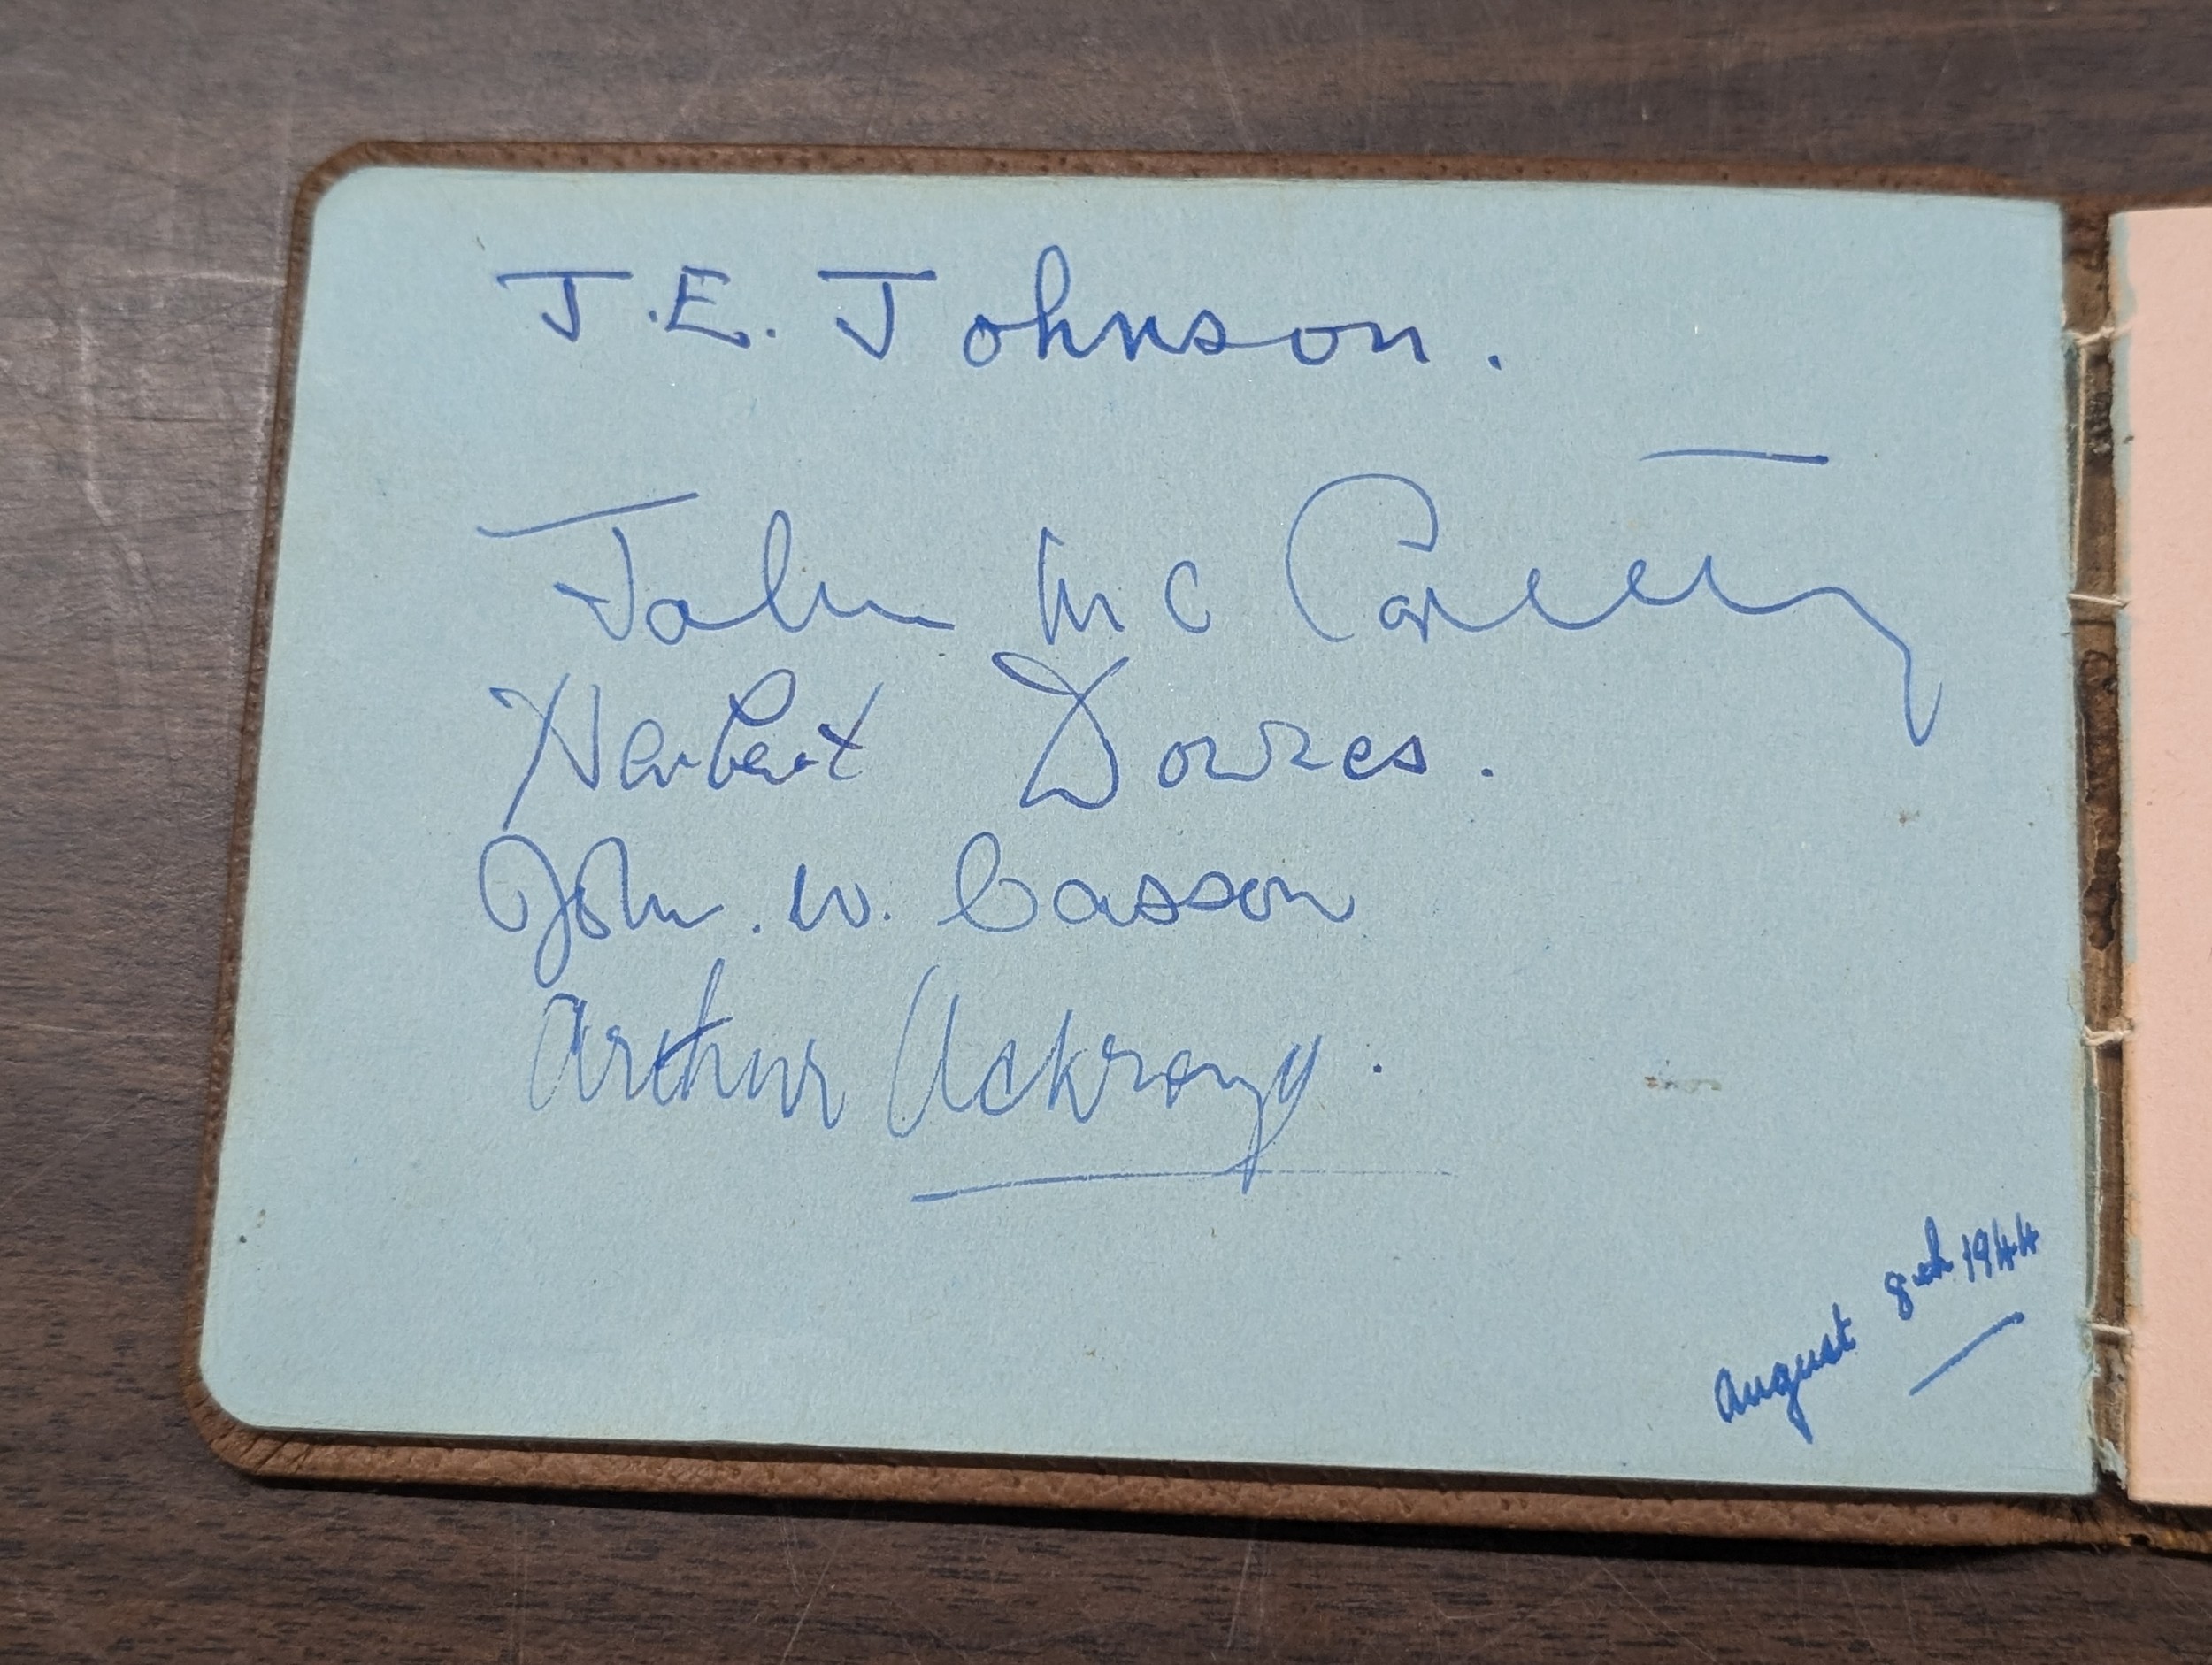 J.E. Johnson.
John Mc
Herbert
John. W. Casson
Arthur Ackroyd.
August 8th 1944